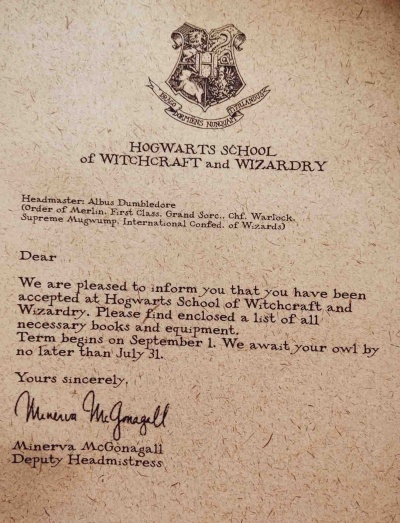 DRACO DORMIENS NUNQUAM TITILLANDUS
HOGWARTS SCHOOL
of WITCHCRAFT and WIZARDRY
Headmaster: Albus Dumbledore
(Order of Merlin, First Class, Grand Sorc., Chf. Warlock,
Supreme Mugwump, International Confed. of Wizards)
Dear
We are pleased to inform you that you have been
accepted at Hogwarts School of Witchcraft and
Wizardry. Please find enclosed a list of all
necessary books and equipment.
Term begins on September 1. We await your owl by
no later than July 31.
Yours sincerely,
Minerva McGonagall
Minerva McGonagall
Deputy Headmistress